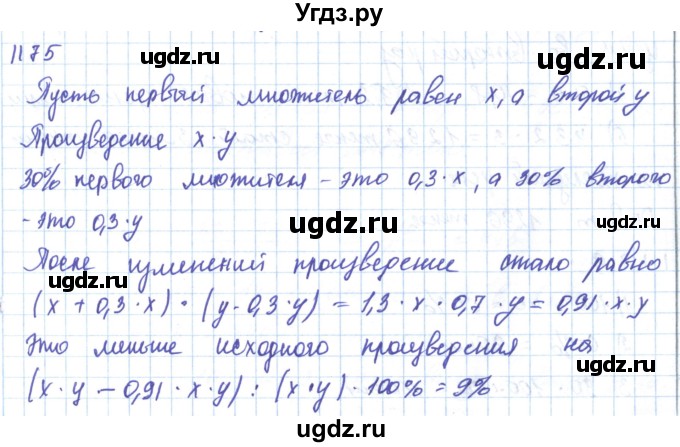 Угдз.ру
1175
ugdz.ru ugdz.ru
Пусть первый множитель равен x, а второй y
Произведение x · y
30% первого множителя - это 0,3 · x, а 30% второго
- это 0,3 · y
ugdz.ru ugdz.ru
После изменений произведение стало равно
ugdz.ru ugdz.ru
(x + 0,3 · x) · (y - 0,3 · y) = 1,3 · x · 0,7 · y = 0,91 · x · y
Это меньше исходного произведения на
ugdz.ru
(x · y - 0,91 · x · y) : (x · y) · 100% = 9%
ugdz.ru